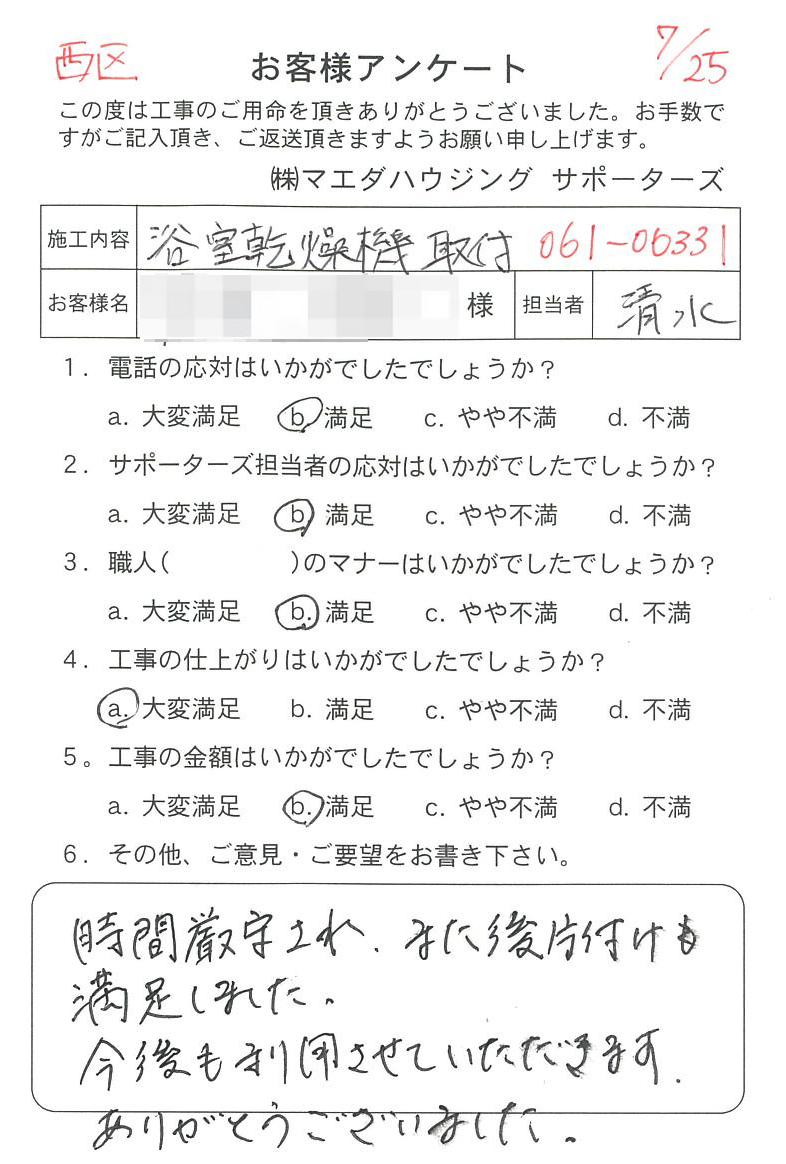 西区 お客様アンケート 7/25
この度は工事のご用命を頂きありがとうございました。お手数で
すがご記入頂き、ご返送頂きますようお願い申し上げます。
㈱マエダハウジング サポーターズ
施工内容 浴室乾燥機取付 061-06331
お客様名 様 担当者 清水
1. 電話の応対はいかがでしたでしょうか?
a. 大変満足 b. 満足 c. やや不満 d. 不満
2. サポーターズ担当者の応対はいかがでしたでしょうか?
a. 大変満足 b. 満足 c. やや不満 d. 不満
3. 職人( )のマナーはいかがでしたでしょうか?
a. 大変満足 b. 満足 c. やや不満 d. 不満
4. 工事の仕上がりはいかがでしたでしょうか?
a. 大変満足 b. 満足 c. やや不満 d. 不満
5。工事の金額はいかがでしたでしょうか?
a. 大変満足 b. 満足 c. やや不満 d. 不満
6. その他、ご意見・ご要望をお書き下さい。
時間厳守され、また後片付けも
満足しました。
今後も利用させていただきます.
ありがとうございました。